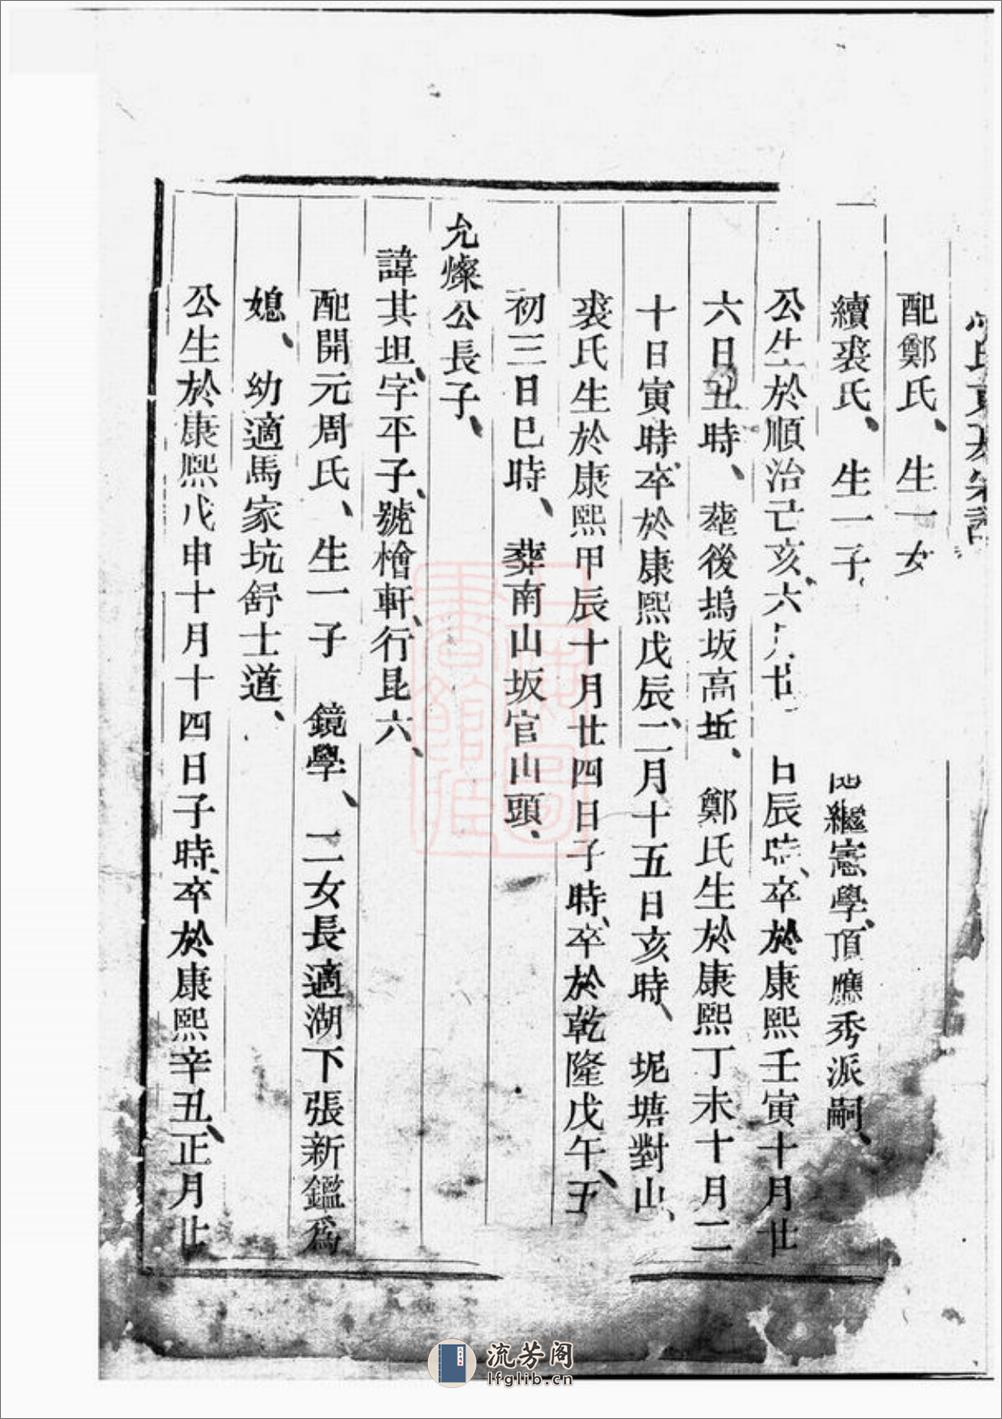 氏
宗譜
配鄭氏、生一女
續裘氏、生一子　繼憲學、頂應秀派嗣、
公生於順治己亥六月廿　日辰時、卒於康熙壬寅十月廿
六日丑時、葬後塢坂高坵、鄭氏生於康熙丁未十月二
十日寅時、卒於康熙戊辰二月十五日亥時、坭塘對山、
裘氏生於康熙甲辰十月廿四日子時、卒於乾隆戊午、五
初三日巳時、葬南山坂官山頭、
允燦公長子、
諱其坦、字平子、號檜軒、行昆六、
配開元周氏、生一子　鏡學、二女長適湖下張新鑑爲
媳、幼適馬家坑舒士道、
公生於康熙戊申十月十四日子時、卒於康熙辛丑、正月廿
流芳阁
lfglib.cn